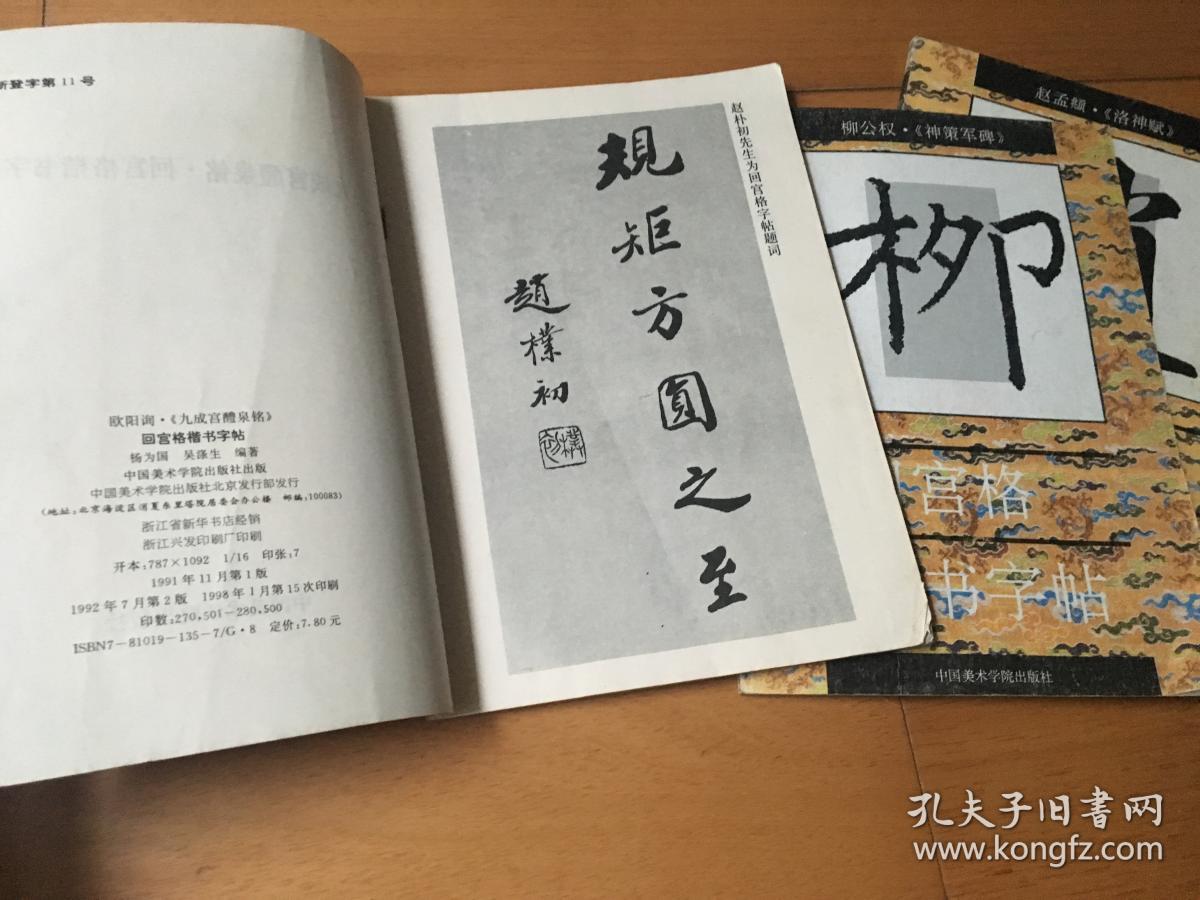 新登字第11号
欧阳询·《九成宫醴泉铭》
回宫格楷书字帖
杨为国 吴涤生 编著
中国美术学院出版社出版
中国美术学院出版社北京发行部发行
(地址:北京海淀区消夏东里塔院居委会办公楼 邮编:100083)
浙江省新华书店经销
浙江兴发印刷厂印刷
开本:787×1092 1/16 印张:7
1991年11月第1版
1992年7月第2版 1998年1月第15次印刷
印数:270,501-280,500
ISBN7-81019-135-7/G·8 定价:7.80元
赵朴初先生为回宫格字帖题词
規矩方圓之至
趙樸初
樸初
柳公权·《神策军碑》
柳
宫格
书字帖
中国美术学院出版社
赵孟頫·《洛神赋》
孔夫子旧书网
www.kongfz.com